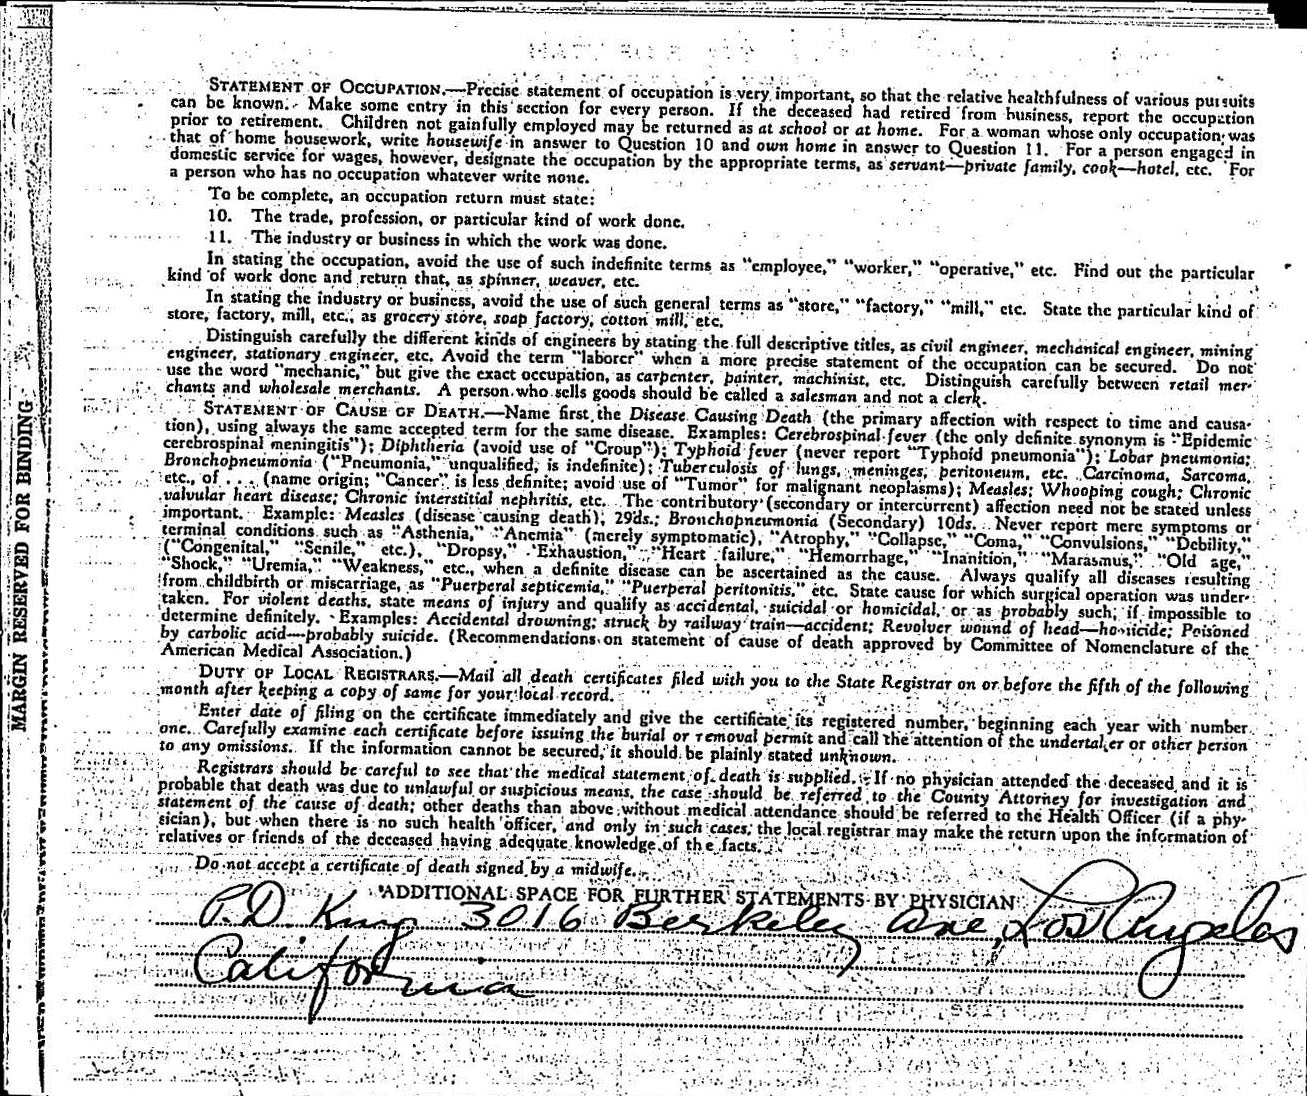 STATEMENT OF OCCUPATION.—Precise statement of occupation is very important, so that the relative healthfulness of various pursuits
can be known. Make some entry in this section for every person. If the deceased had retired from business, report the occupation
prior to retirement. Children not gainfully employed may be returned as at school or at home. For a woman whose only occupation was
that of home housework, write housewife in answer to Question 10 and own home in answer to Question 11. For a person engaged in
domestic service for wages, however, designate the occupation by the appropriate terms, as servant—private family, cook—hotel, etc. For
a person who has no occupation whatever write none.
To be complete, an occupation return must state:
10. The trade, profession, or particular kind of work done.
11. The industry or business in which the work was done.
In stating the occupation, avoid the use of such indefinite terms as "employee," "worker," "operative," etc. Find out the particular
kind of work done and return that, as spinner, weaver, etc.
In stating the industry or business, avoid the use of such general terms as "store," "factory," "mill," etc. State the particular kind of
store, factory, mill, etc., as grocery store, soap factory, cotton mill, etc.
Distinguish carefully the different kinds of engineers by stating the full descriptive titles, as civil engineer, mechanical engineer, mining
engineer, stationary engineer, etc. Avoid the term "laborer" when a more precise statement of the occupation can be secured. Do not
use the word "mechanic," but give the exact occupation, as carpenter, painter, machinist, etc. Distinguish carefully between retail mer-
chants and wholesale merchants. A person who sells goods should be called a salesman and not a clerk.
STATEMENT OF CAUSE OF DEATH.—Name first the Disease Causing Death (the primary affection with respect to time and causa-
tion), using always the same accepted term for the same disease. Examples: Cerebrospinal fever (the only definite synonym is "Epidemic
cerebrospinal meningitis"); Diphtheria (avoid use of "Croup"); Typhoid fever (never report "Typhoid pneumonia"); Lobar pneumonia;
Bronchopneumonia ("Pneumonia," unqualified, is indefinite); Tuberculosis of lungs, meninges, peritoneum, etc. Carcinoma, Sarcoma,
etc., of . . . (name origin; "Cancer" is less definite; avoid use of "Tumor" for malignant neoplasms); Measles; Whooping cough; Chronic
valvular heart disease; Chronic interstitial nephritis, etc. The contributory (secondary or intercurrent) affection need not be stated unless
important. Example: Measles (disease causing death), 29ds.; Bronchopneumonia (Secondary) 10ds. Never report mere symptoms or
terminal conditions such as "Asthenia," "Anemia" (merely symptomatic), "Atrophy," "Collapse," "Coma," "Convulsions," "Debility,"
("Congenital," "Senile," etc.), "Dropsy," "Exhaustion," "Heart failure," "Hemorrhage," "Inanition," "Marasmus," "Old age,"
"Shock," "Uremia," "Weakness," etc., when a definite disease can be ascertained as the cause. Always qualify all diseases resulting
from childbirth or miscarriage, as "Puerperal septicemia," "Puerperal peritonitis," etc. State cause for which surgical operation was under-
taken. For violent deaths, state means of injury and qualify as accidental, suicidal or homicidal, or as probably such, if impossible to
determine definitely. Examples: Accidental drowning; struck by railway train—accident; Revolver wound of head—homicide; Poisoned
by carbolic acid—probably suicide. (Recommendations on statement of cause of death approved by Committee of Nomenclature of the
American Medical Association.)
DUTY OF LOCAL REGISTRARS.—Mail all death certificates filed with you to the State Registrar on or before the fifth of the following
month after keeping a copy of same for your local record.
Enter date of filing on the certificate immediately and give the certificate its registered number, beginning each year with number
one. Carefully examine each certificate before issuing the burial or removal permit and call the attention of the undertaker or other person
to any omissions. If the information cannot be secured, it should be plainly stated unknown.
Registrars should be careful to see that the medical statement of death is supplied. If no physician attended the deceased and it is
probable that death was due to unlawful or suspicious means, the case should be referred to the County Attorney for investigation and
statement of the cause of death; other deaths than above without medical attendance should be referred to the Health Officer (if a phy-
sician), but when there is no such health officer, and only in such cases, the local registrar may make the return upon the information of
relatives or friends of the deceased having adequate knowledge of the facts.
Do not accept a certificate of death signed by a midwife.
ADDITIONAL SPACE FOR FURTHER STATEMENTS BY PHYSICIAN
P.D. King 3016 Berkeley Ave, Los Angeles
California
MARGIN RESERVED FOR BINDING